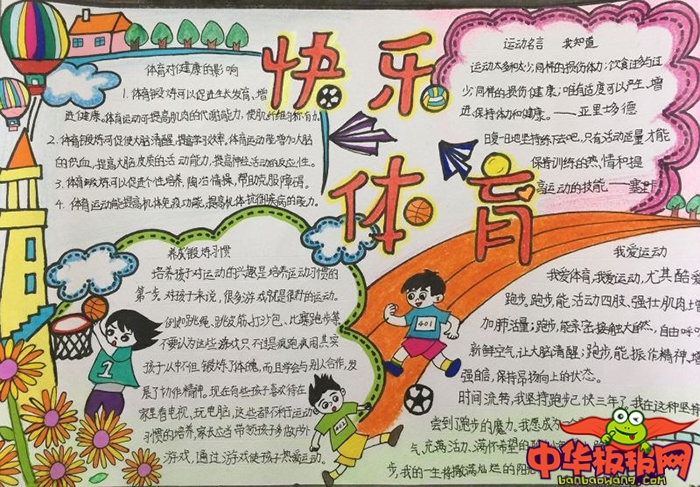 快乐
体育
体育对健康的影响
1. 体育锻炼可以促进生长发育,增
进健康。体育运动可提高肌肉的代谢能力,使肌纤维
2. 体育锻炼可促使大脑清醒,提高学习效率,体育运动能增加大脑
的供血,提高大脑皮质的活动能力,提高神经活动的反应性。
3. 体育锻炼可以促进个性培养,陶冶情操,帮助克服障碍。
4. 体育运动能提高机体免疫功能,提高机体抗御疾病的能力。
运动名言 我知道
运动太多和太少,同样的损伤体力;饮食过多与过
少,同样的损伤健康;唯有适度可以产生、增
进、保持体力和健康。——亚里斯多德
日复一日地坚持练下去吧,只有活动适量才能
保持训练的热情和提
高运动的技能——塞
养成锻炼习惯
培养孩子对运动的兴趣是培养运动习惯的
第一步。对孩子来说,很多游戏就是很好的运动。
例如跳绳、跳皮筋、打沙包、比赛跑步等
不要认为这些游戏只不过是疯跑疯闹,其实
孩子从中不但锻炼了体魄,而且学会与别人合作,发
展了协作精神。现在有些孩子喜欢待在
家里看电视、玩电脑,这些都不利于运动
习惯的培养,家长应当带领孩子多做户外
游戏,通过游戏使孩子热爱运动。
我爱运动
我爱体育,我爱运动,尤其酷爱
跑步。跑步,能活动四肢、强壮肌肉
加肺活量;跑步,能亲密接触大自然,自由呼
新鲜空气,让大脑清醒;跑步,能振作精神,增
强自信,保持昂扬向上的状态。
时间流转,我坚持跑步已快三年了,我在这种坚持
尝到了跑步的魔力。我愿成为一
气、充满活力、满怀希望的
步,我的一生将撒满灿烂的阳
1
401
402
中华板报网
banbaowang.com